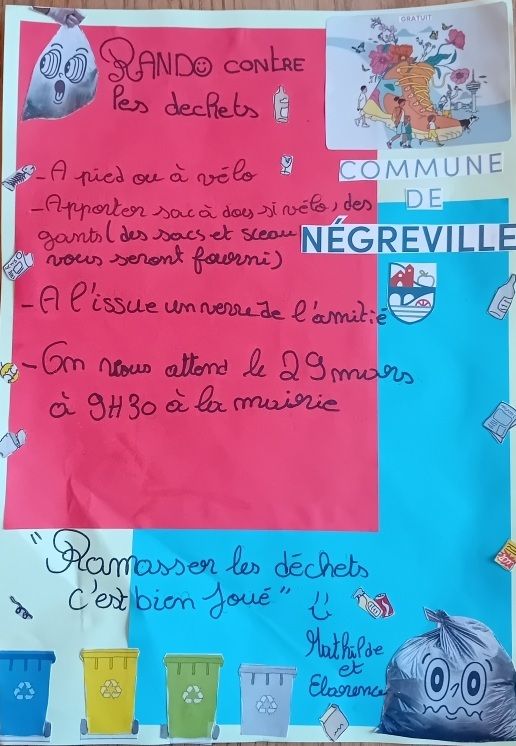 GRATUIT
RANDO CONTRE
les dechets
COMMUNE
DE
NÉGREVILLE
- A pied ou à vélo
- Apporter sac à dos si vélo, des
gants (des sacs et sceau
vous seront fourni)
- A l'issue un verre de l'amitié
- On vous attend le 29 mars
à 9H30 à la mairie
"Ramasser les déchets
c'est bien Joué"
Mathilde
et